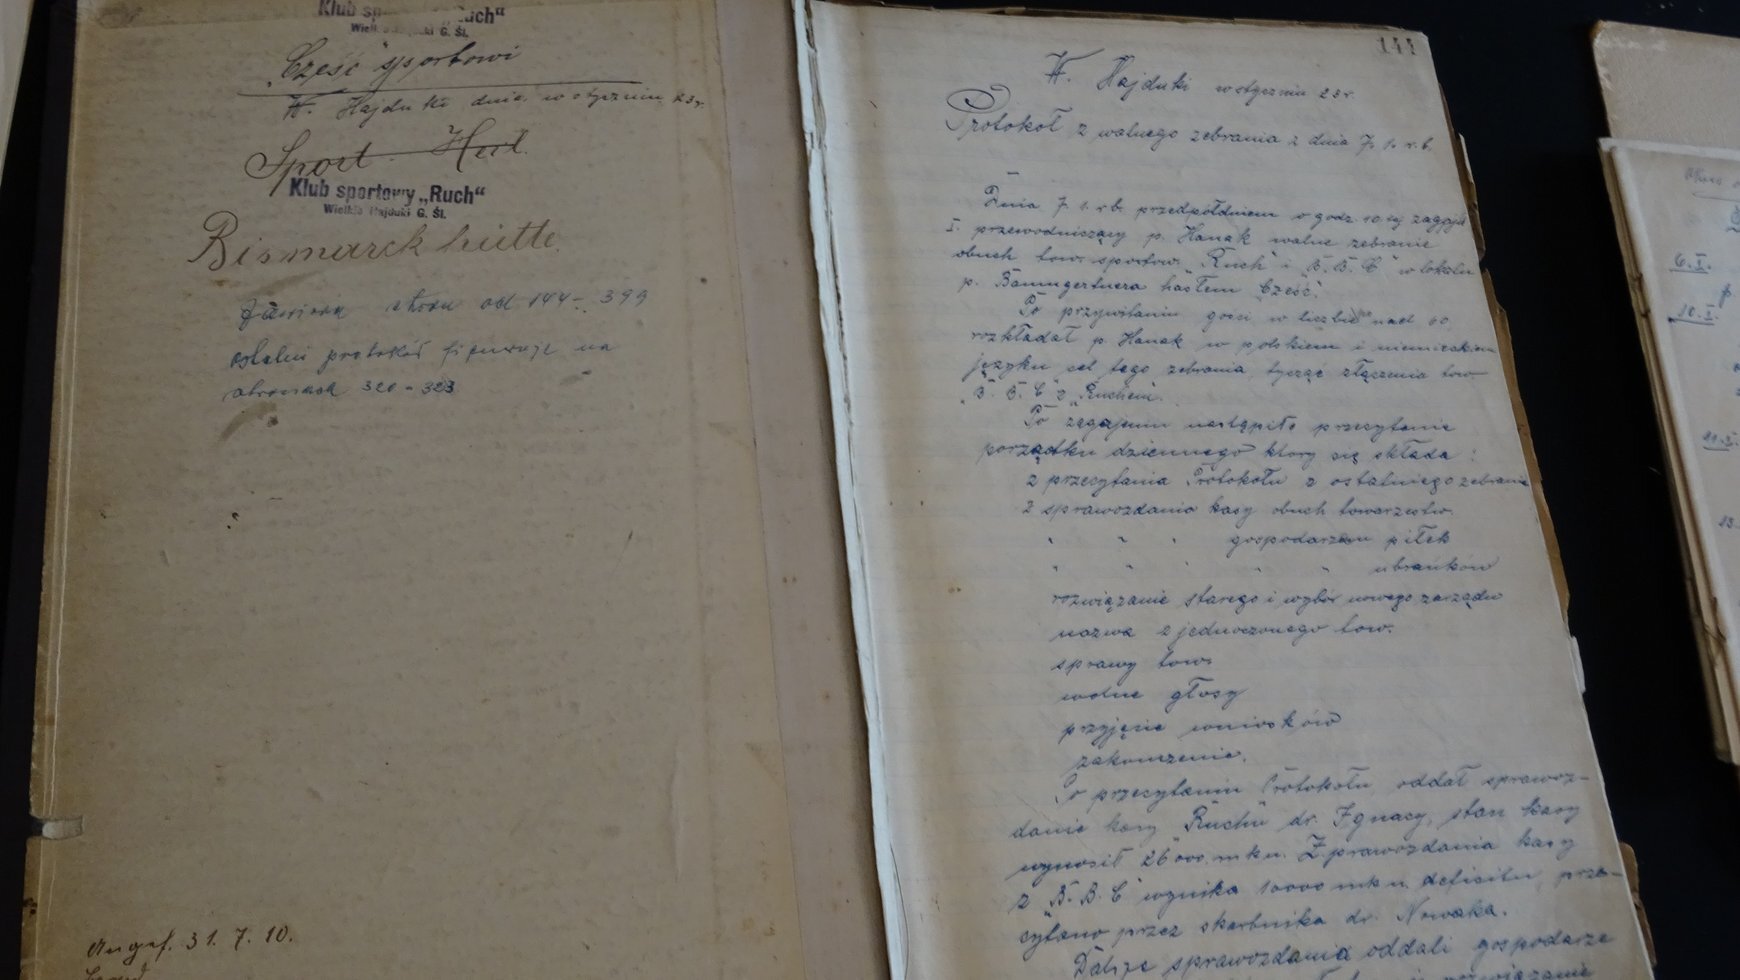 Klub sp "Ruch"
Wielkie Hajduki G. Śl.
Cześć sportowi
W. Hajduki dnia w styczniu 23 r.
Sport Heil
Klub sportowy „Ruch“
Wielkie Hajduki G. Śl.
Bismarckhütte.
Zawiera stron od 144 - 399
ostatni protokół figuruje na
stronach 320 - 323
Angef. 31. 7. 10.
144
W. Hajduki w styczniu 23 r.
Protokół z walnego zebrania z dnia 7. 1. r. b.
Dnia 7. 1. r. b. przedpołdniem o godz 10 tej zagajił
I. przewodniczący p. Hanak walne zebranie
obuch tow. sportow. "Ruch" i "B. B. C" w lokalu
p. Baumgertnera hasłem "Cześć".
Po przywitaniu gości w liczbie nad 60
rozkładał p. Hanak w polskiem i niemieckiem
języku cel tego zebrania, tycząć złączenia tow.
"B. B. C" z "Ruchem".
Po zagajeniu nastąpiło przeczytanie
porządku dziennego który się składa :
z przeczytania Protokołu z ostatniego zebrania
z sprawozdania kasy obuch towarzystw.
" " " gospodarzom piłek
" " " " " ubrańków
rozwiązanie starego i wybór nowego zarządu
nazwa zjednoczonego tow.
sprawy tow.
wolne głosy
przyjęcie wniosków
zakończenie.
Po przeczytaniu Protokołu, oddał sprawoz-
danie kasy "Ruchu" dr. Ignacy, stan kasy
wynosił 26 000 mkn. Z prawozdania kasy
z "B. B. C" wynika 10000 mkn deficitu, prze-
cytano przez skarbnika dr. Nowaka.
Dalsze sprawozdania oddali gospodarze
rozwiązanie
6. I.
10. I.